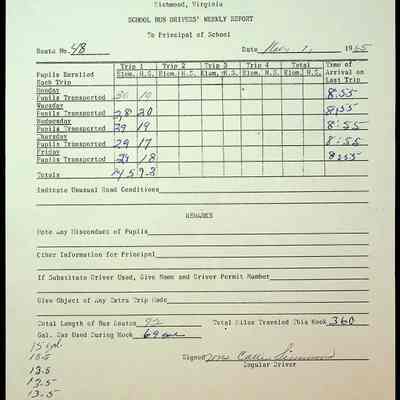 Richmond, Virginia
SCHOOL BUS DRIVERS' WEEKLY REPORT
To Principal of School
Route No. 48 Date 1965
Trip 1 Trip 2 Trip 3 Trip 4 Total Time of
Pupils Enrolled Elem. H.S. Elem. H.S. Elem. H.S. Elem. H.S. Elem. H.S. Arrival on
Each Trip Last Trip
Monday
Pupils Transported 8:55
Tuesday
Pupils Transported 28 20 8:55
Wednesday
Pupils Transported 29 19 8:55
Thursday
Pupils Transported 29 17 8:55
Friday
Pupils Transported 29 18 8:55
Totals
Indicate Unusual Road Conditions
REMARKS
Note Any Misconduct of Pupils
Other Information for Principal
If Substitute Driver Used, Give Name and Driver Permit Number
Give Object of Any Extra Trip Made
Total Length of Bus Routes 72 Total Miles Traveled This Week 360
Gal. Gas Used During Week 69
Signed Mrs
Regular Driver
13.5
13.5
13.5